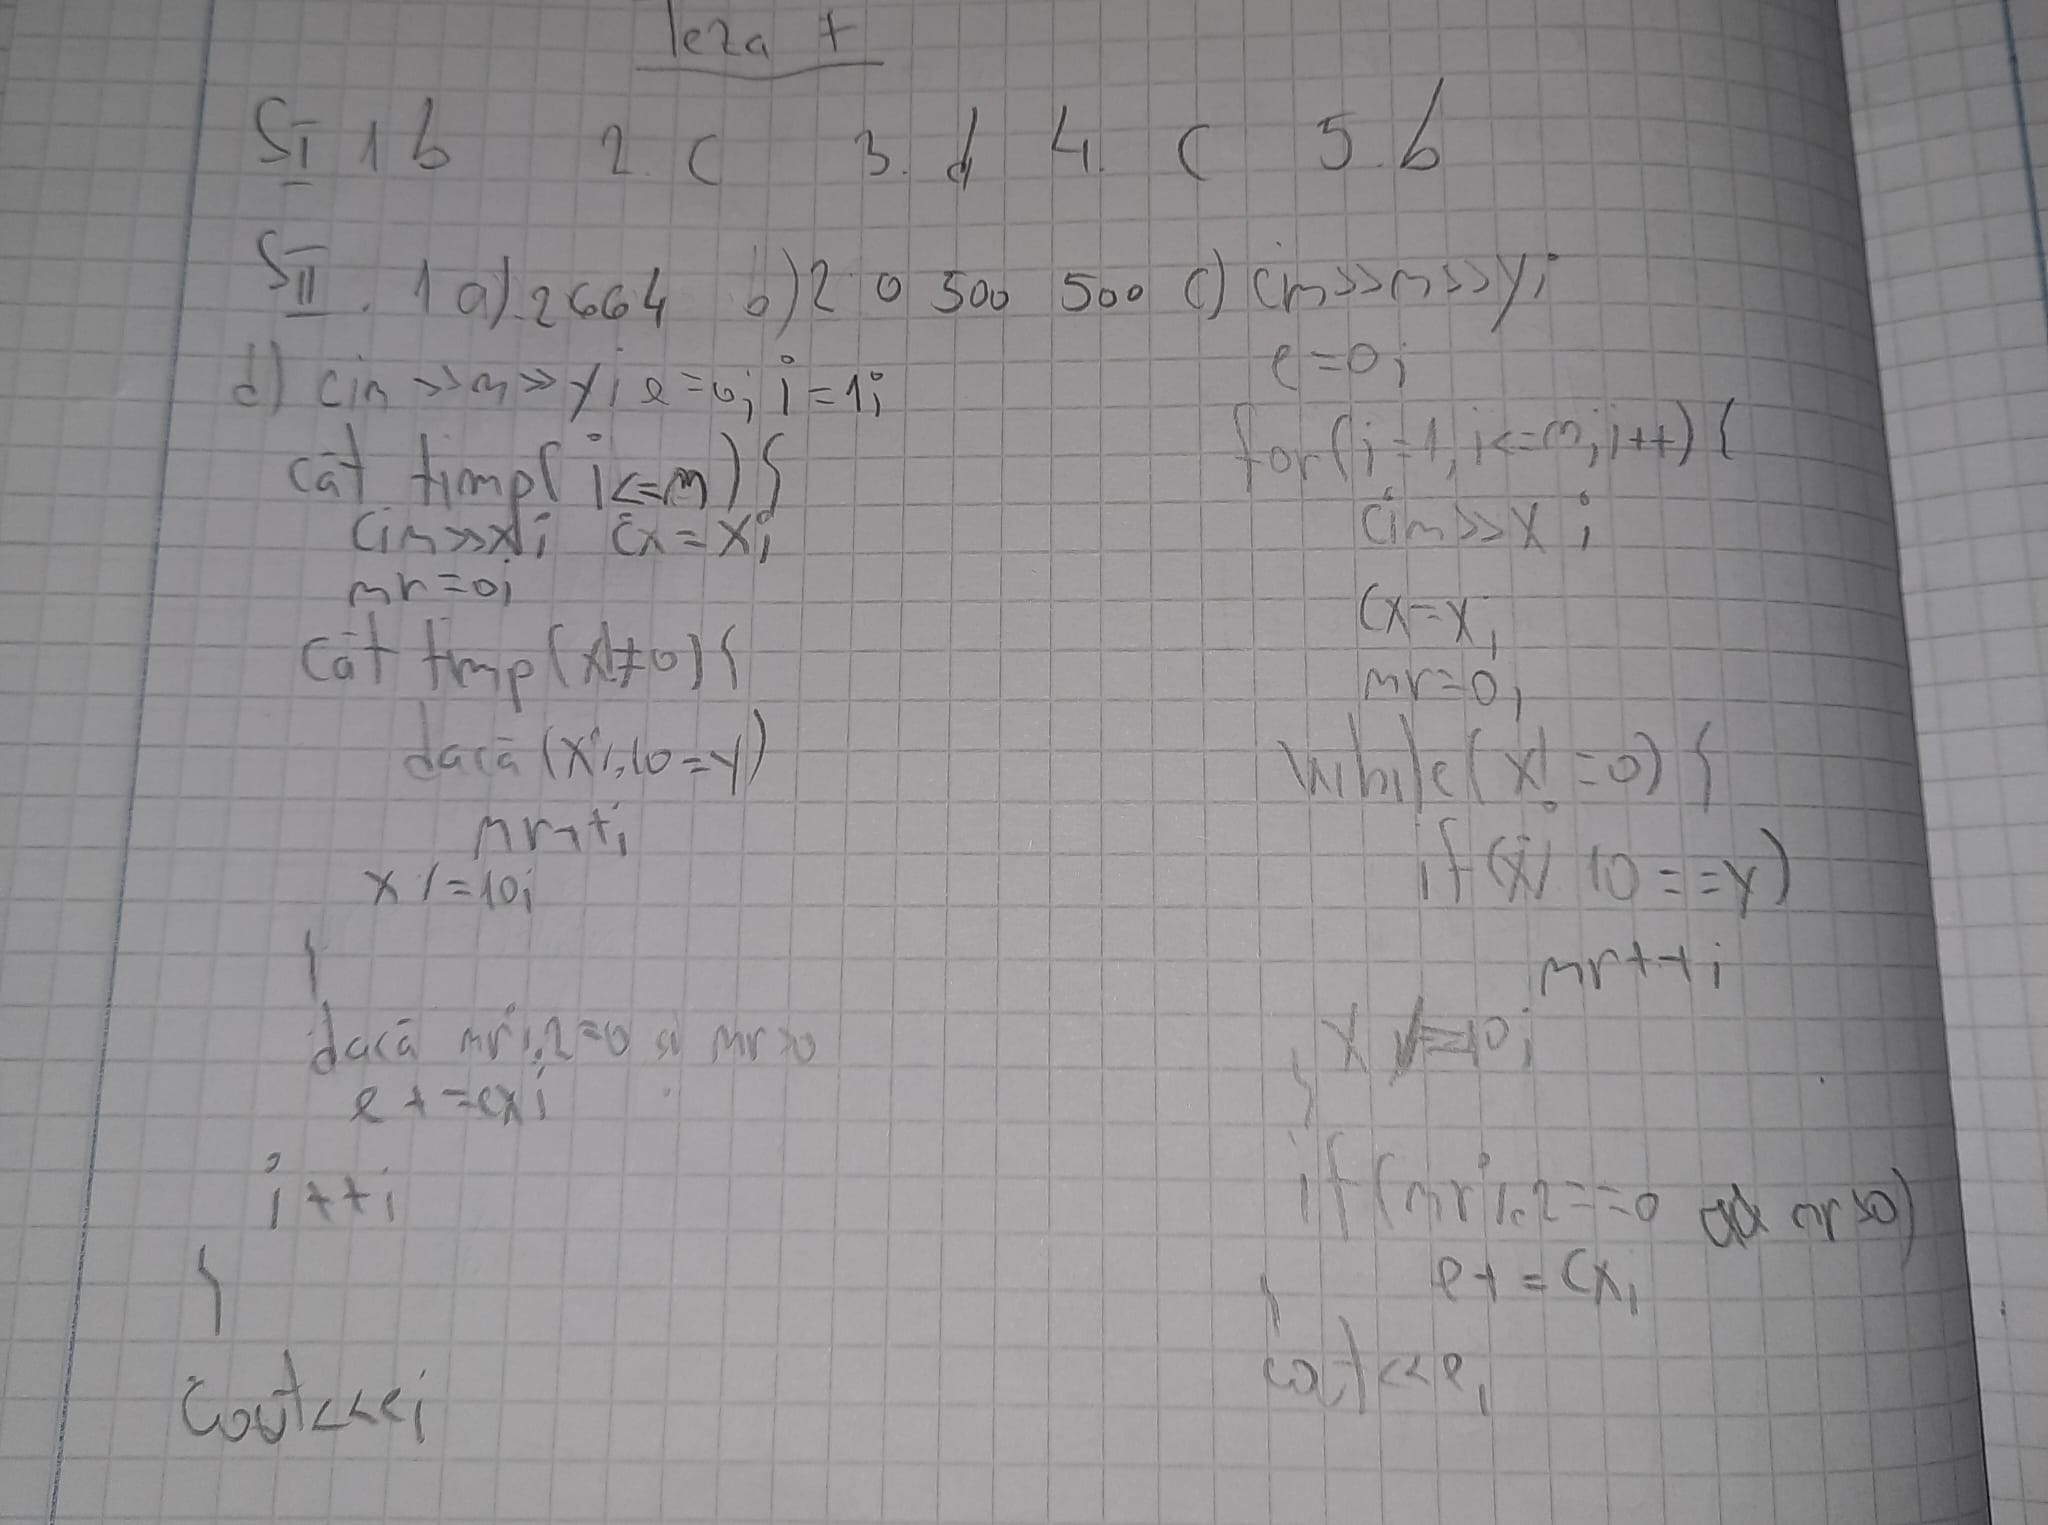 Teza 7
SI 1 b 2. c 3. d 4. c 5. b
SII. 1 a) 2664 b) 2 0 500 500 c) cin>>n>>y;
e=0;
for(i=1, i<=n; i++) {
cin>>x;
cx=x;
nr=0;
while(x!=0) {
if(x% 10==y)
nr++;
x /=10;
}
if(nr%2==0 && nr>0)
e+=cx;
}
cout<<e;
d) cin>>n>>y; e=0; i=1;
cât timp( i<=n) {
cin>>x; cx=x;
nr=0;
cât timp(x≠0) {
dacă (x%10=y)
nr++;
x /=10;
}
dacă nr%2=0 și nr>0
e+=cx;
i++;
}
cout<<e;